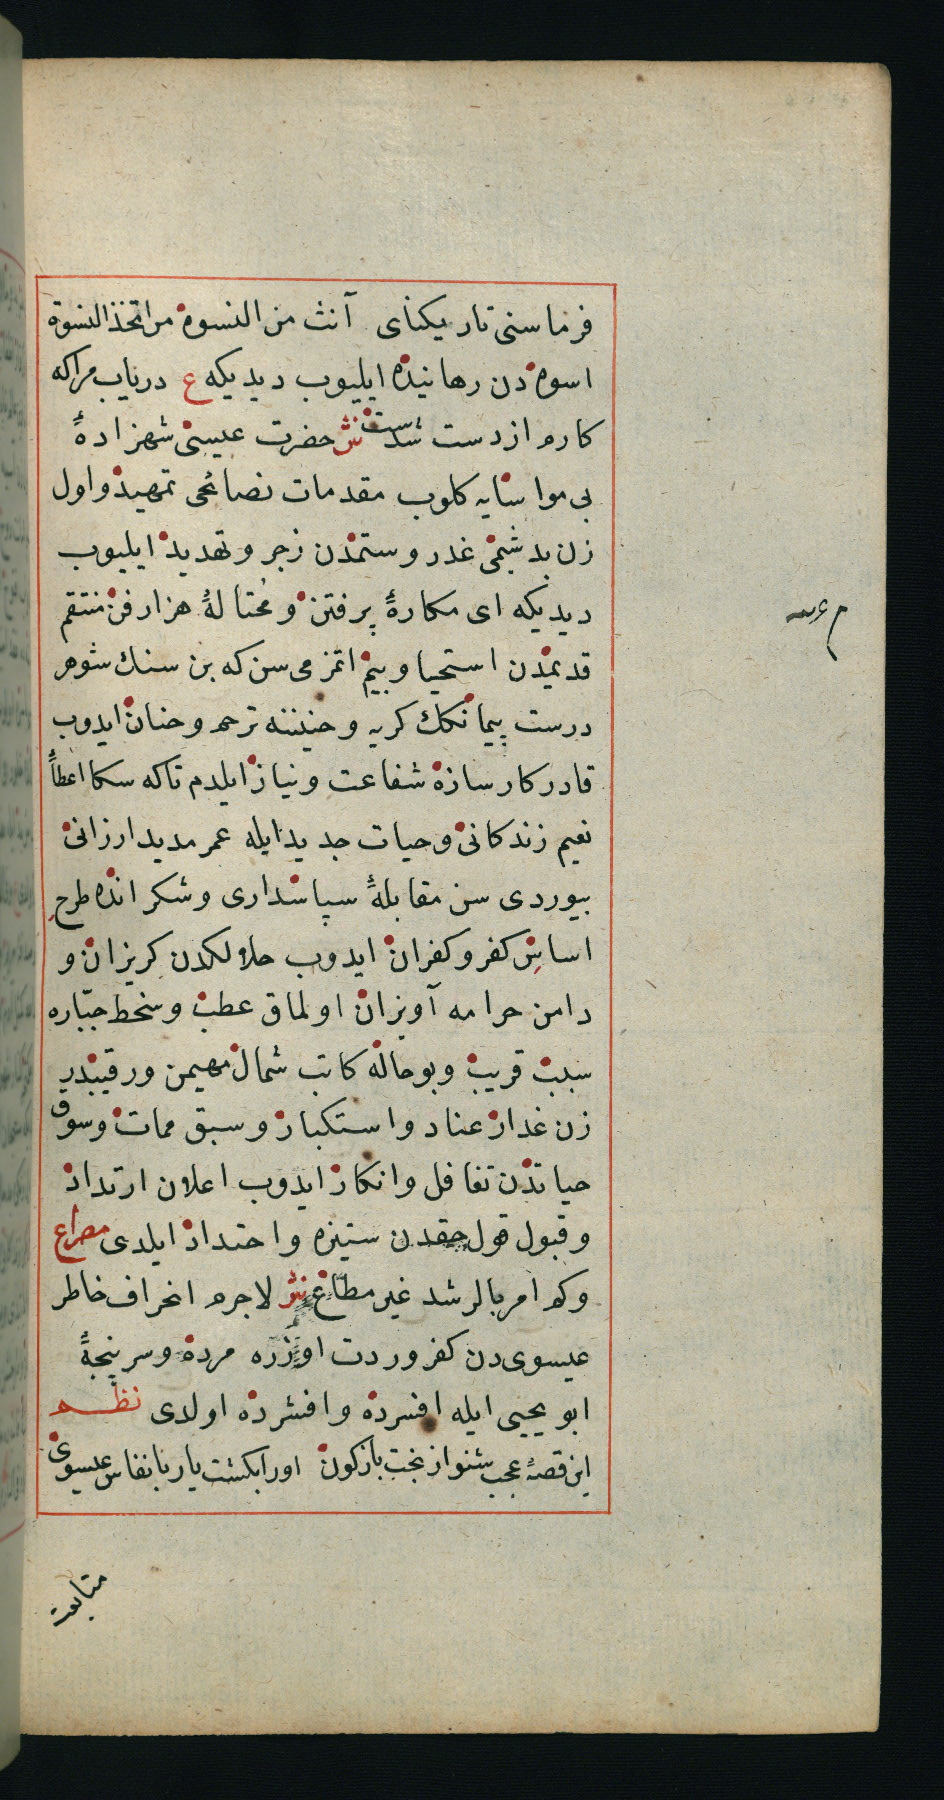 فرما سنی تاریکنای آنث من النسوه من اتخذ النسوة
اسوه دن رهانیده ایلیوب دیدیکه ع دریاب مرا که
کارم از دست شدست نثر حضرت عیسی شهزادهٔ
بی مواسایه کلوب مقدمات نصائحی تمهید و اول
زن بدشیمی غدر و ستمدن زجر و تهدید ایلیوب
دیدیکه ای مکارهٔ پرفتن و محتالهٔ هزار فن منتقم
قدیمدن استحیا و بیم اتمزمی سن که بن سنك شوهر
درست پیمانكك کریه و حنیننه ترحم و حنان ایدوب
قادر کارسازه شفاعت و نیاز ایلدم تا که سکا اعطاء
نعیم زندکانی و حیات جدید ایله عمر مدید ارزانی
بیوردی سن مقابلهٔ سپاسداری و شکرانده طرح
اساس کفر و کفران ایدوب حلالکدن کریزان و
دامن حرامه آویزان اولماق عطب و سخط جباره
سبب قریب و بو حاله کاتب شمال مهیمن و رقیبدر
زن غدار عناد و استکبار و سبق ممات و سوق
حیاتدن تغافل و انکار ایدوب اعلان ارتداد
و قبول قول حقدن ستیزه و احتداد ایلدی مصراع
وکم امر بالرشد غیر مطاع نثر لاجرم انحراف خاطر
عیسوی دن کفر و ردت اوزره مرده و سرپنجهٔ
ابو یحیی ایله افسرده و افشرده اولدی نظم
این قصهٔ عجب شنو از بخت بازکون اورا بکشت یار بانفاس عیسوی
متابعت